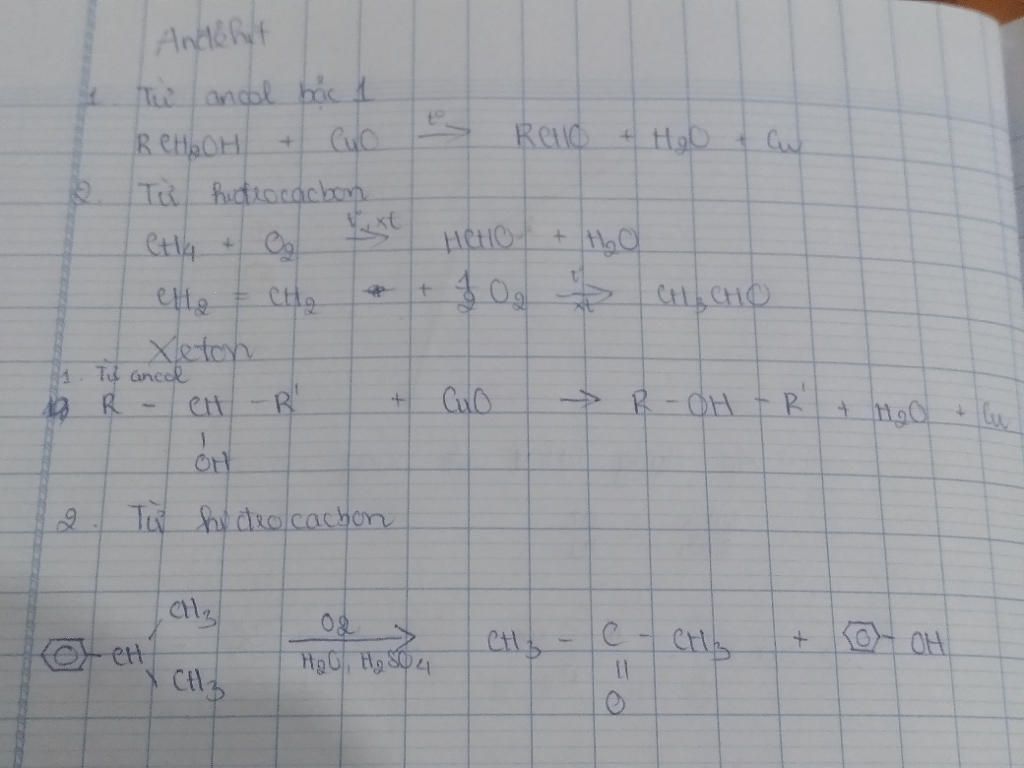 Anđêhit
1. Từ ancol bậc 1
RCH2OH + CuO t° → RCHO + H2O + Cu
2. Từ hiđrocacbon
CH4 + O2 t°, xt → HCHO + H2O
CH2 = CH2 + 1/2 O2 t° xt → CH3CHO
Xeton
1. Từ ancol
R - CH - R' + CuO → R - OH - R' + H2O + Cu
OH
2. Từ hyđrocacbon
CH3
CH O2 H2O, H2SO4 → CH3 - C - CH3 + OH
CH3
O